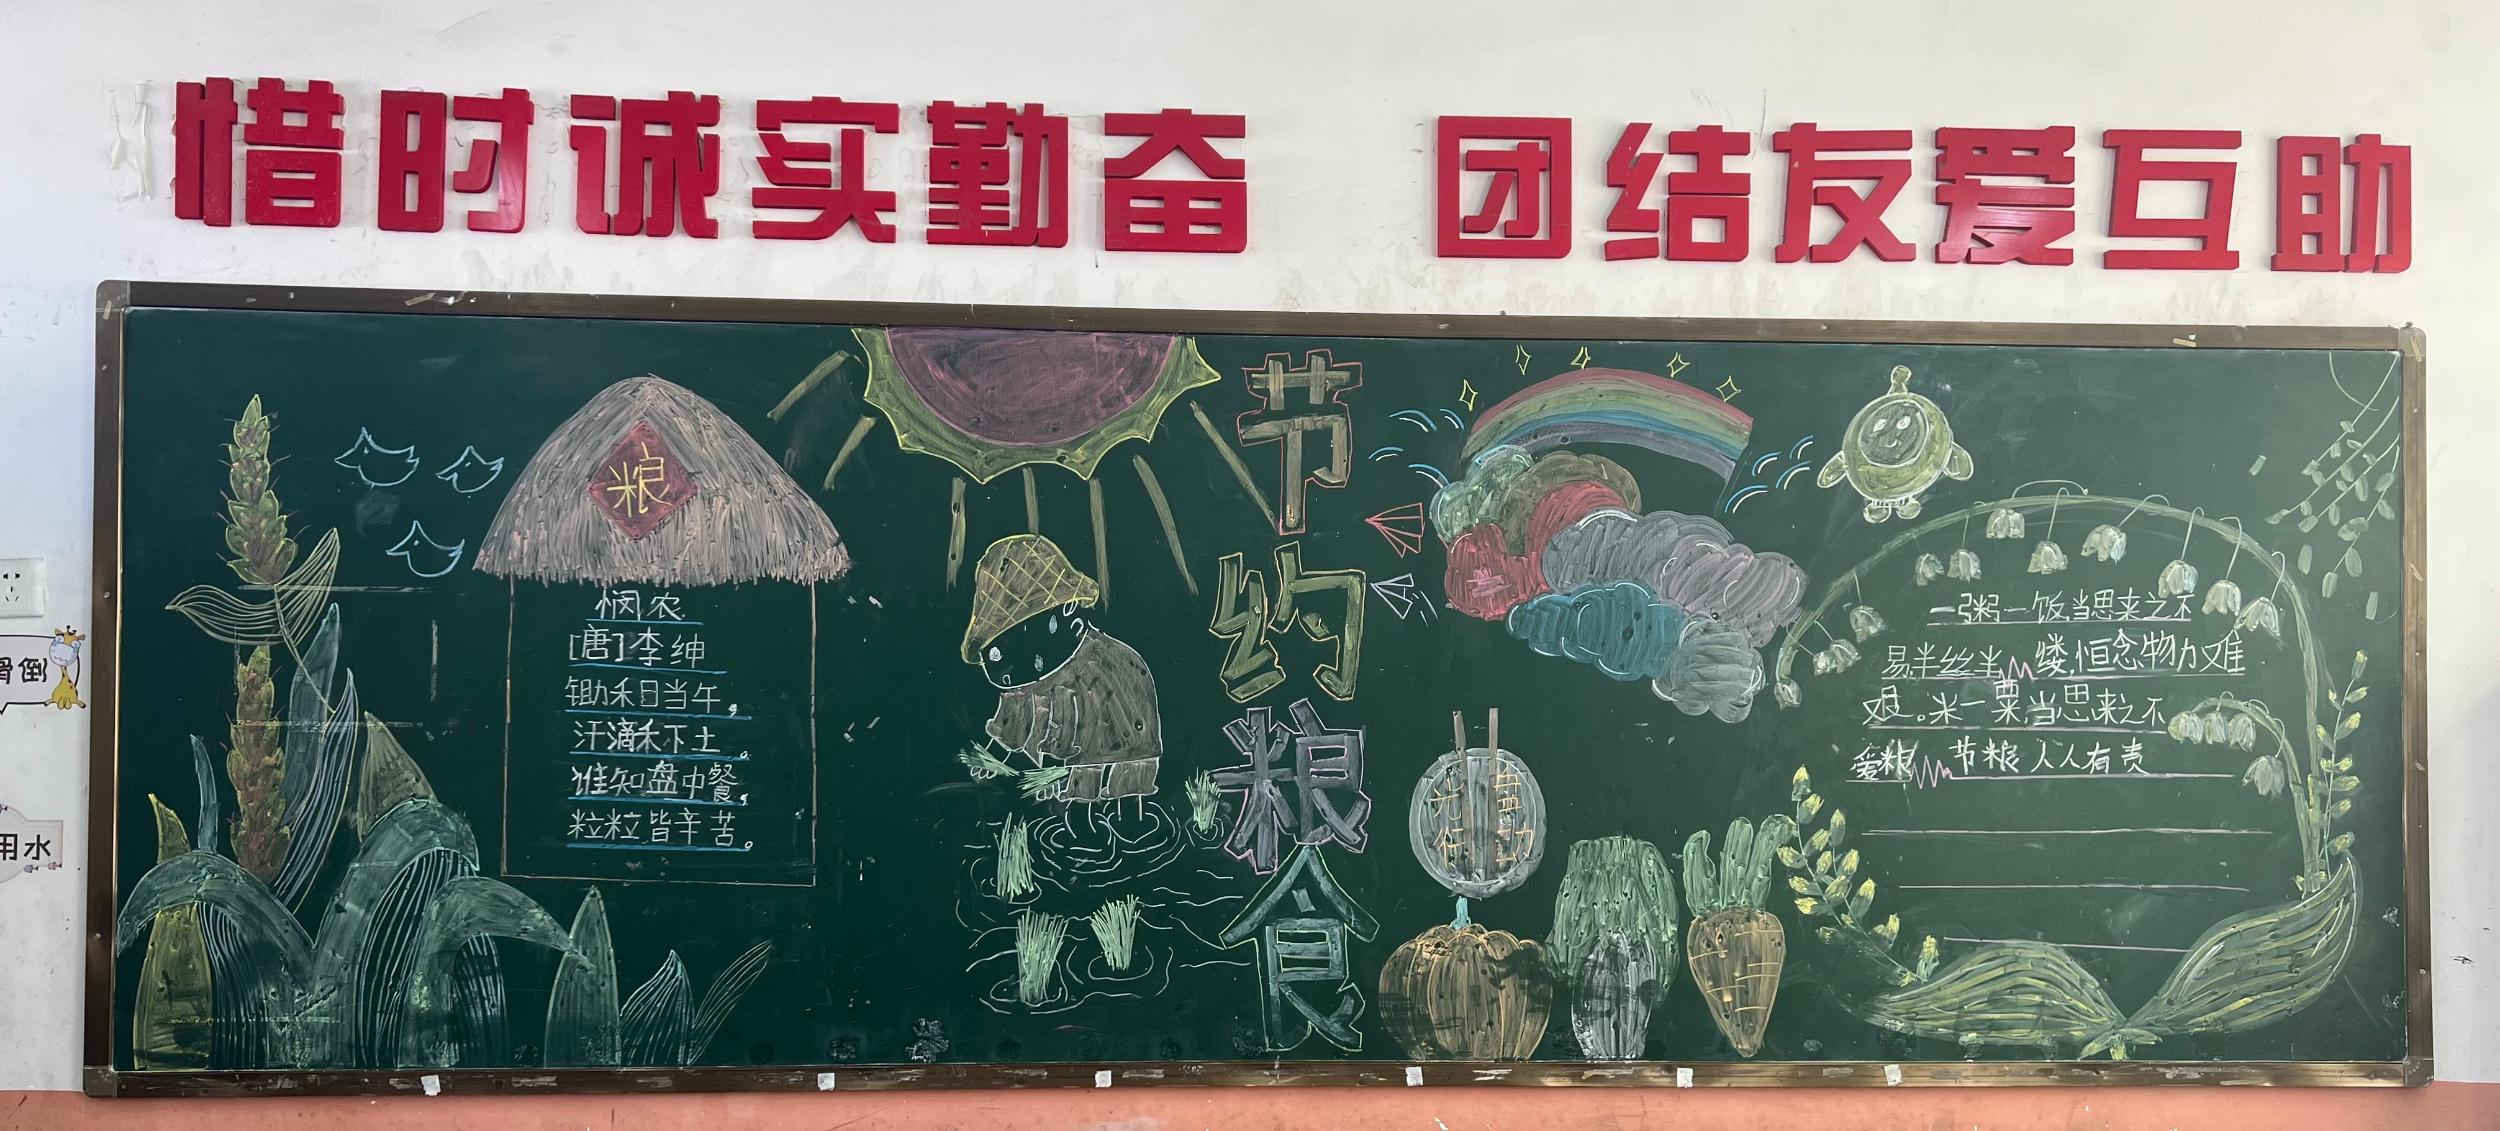 惜时诚实勤奋 团结友爱互助
粮
悯农
[唐]李绅
锄禾日当午，
汗滴禾下土。
谁知盘中餐，
粒粒皆辛苦。
节约粮食
光盘
行动
一粥一饭,当思来之不
易,半丝半缕,恒念物力难
艰。米一粟,当思来之不
爱粮 节粮 人人有责
倒
用水